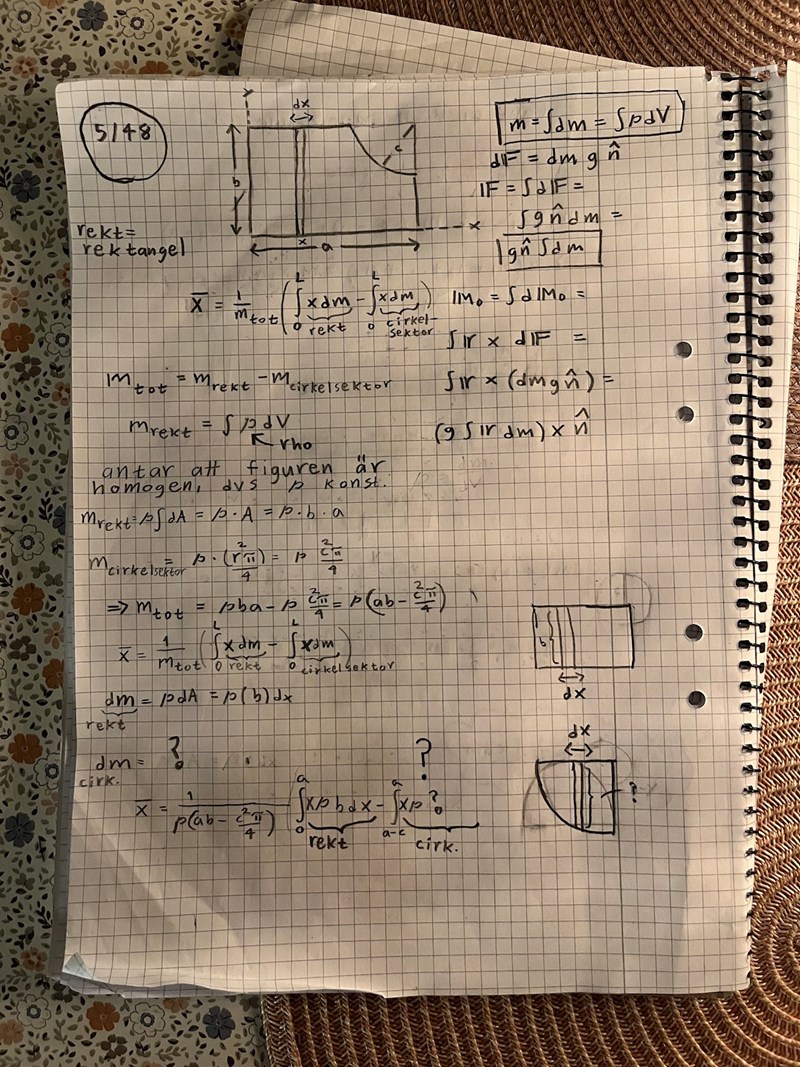 5/48
y
dx
b
c
x
x
a
rekt=
rektangel
m = ∫dm = ∫ρdV
dIF = dm g n̂
IF = ∫dIF =
∫g n̂ dm =
g n̂ ∫dm
x̄ = 1/m_tot (∫₀ᴸ x dm - ∫₀ᴸ x dm)
rekt cirkel-
sektor
IM₀ = ∫dIM₀ =
∫Ir × dIF =
∫Ir × (dm g n̂) =
(g ∫Ir dm) × n̂
m_tot = m_rekt - m_cirkelsektor
m_rekt = ∫ρdV
rho
antar att figuren är
homogen, dvs ρ konst.
m_rekt = ρ∫dA = ρ·A = ρ·b·a
m_cirkelsektor = ρ·(r²π/4) = ρ c²π/4
⇒ m_tot = ρba - ρ c²π/4 = ρ(ab - c²π/4)
x̄ = 1/m_tot (∫₀ᴸ x dm - ∫₀ᴸ x dm)
rekt cirkelsektor
dm = ρdA = ρ(b)dx
rekt
b
dx
dm = ?
cirk.
?
x̄ = 1/ρ(ab - c²π/4) (∫₀ᵃ xρb dx - ∫ₐ₋cᵃ xρ ?
rekt cirk.
dx
?